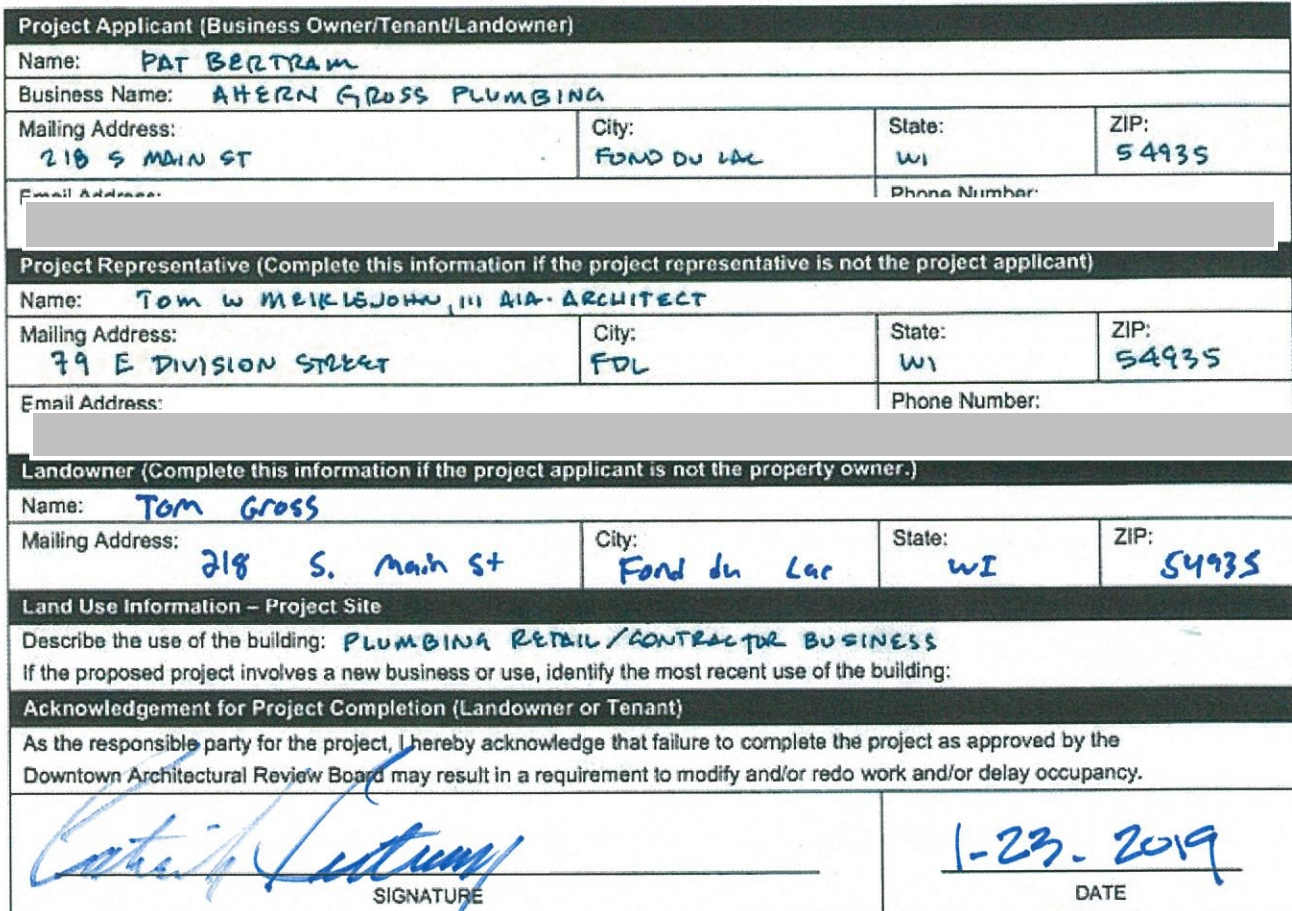 Project Applicant (Business Owner/Tenant/Landowner)
Name: PAT BERTRAM
Business Name: AHERN GROSS PLUMBING
Mailing Address: City: State: ZIP:
218 S MAIN ST FOND DU LAC WI 54935
Email Address: Phone Number:
Project Representative (Complete this information if the project representative is not the project applicant)
Name: TOM W MEIKLEJOHN, III AIA - ARCHITECT
Mailing Address: City: State: ZIP:
79 E DIVISION STREET FDL WI 54935
Email Address: Phone Number:
Landowner (Complete this information if the project applicant is not the property owner.)
Name: Tom Gross
Mailing Address: City: State: ZIP:
218 S. Main St Fond du Lac WI 54935
Land Use Information – Project Site
Describe the use of the building: PLUMBING RETAIL/CONTRACTOR BUSINESS
If the proposed project involves a new business or use, identify the most recent use of the building:
Acknowledgement for Project Completion (Landowner or Tenant)
As the responsible party for the project, I hereby acknowledge that failure to complete the project as approved by the
Downtown Architectural Review Board may result in a requirement to modify and/or redo work and/or delay occupancy.
1-23-2019
SIGNATURE DATE